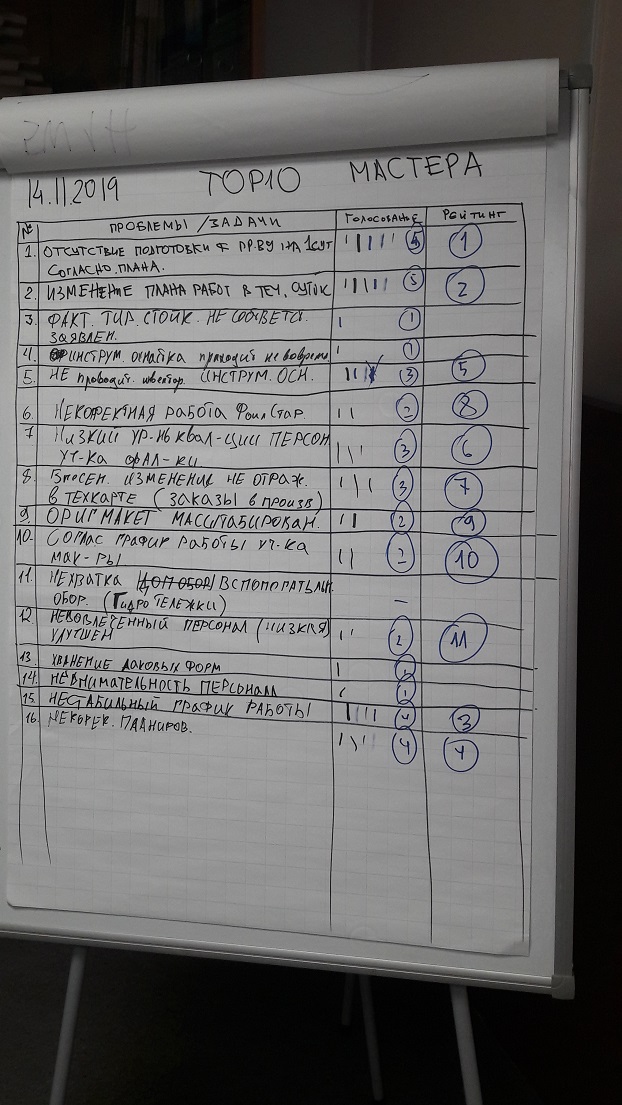 14.11.2019 TOP10 МАСТЕРА
№ ПРОБЛЕМЫ/ЗАДАЧИ ГОЛОСОВАНИЕ РЕЙТИНГ
1. ОТСУТСТВИЕ ПОДГОТОВКИ К ПР.ВУ НА 1 СУТ 5 1
СОГЛАСНО ПЛАНА.
2. ИЗМЕНЕНИЕ ПЛАНА РАБОТ В ТЕЧ. СУТОК 5 2
3. ФАКТ. ТИР. СТОЙК. НЕ СООТВЕТС. 1
ЗАЯВЛЕН.
4. ИНСТРУМ. ОСНАСТКА приходит не вовремя 1
5. НЕ проводит. инвентар. ИНСТРУМ. ОСН. 3 5
6. НЕКОРЕКТНАЯ РАБОТА ФоилСтар. 2 8
7 НИЗКИЙ УР-НЬ КВАЛ-ЦИИ ПЕРСОН 3 6
УЧ-КА
8. ВНЕСЕН. ИЗМЕНЕНИЕ НЕ ОТРАЖ. 3 7
В ТЕХКАРТЕ (ЗАКАЗЫ В ПРОИЗВ)
9. ОРИГ МАКЕТ МАСШТАБИРОВАН. 2 9
10. СОГЛАС ГРАФИК РАБОТЫ УЧ-КА 2 10
МАК-РЫ
11. НЕХВАТКА ДОП ОБОР ВСПОМОГАТЬЛН.
ОБОР. (ГИДРОТЕЛЕЖКИ) –
12. НЕВОВЛЕЧЕННЫЙ ПЕРСОНАЛ (НИЗКАЯ) 2 11
УЛУЧШЕН
13. ХРАНЕНИЕ ЛАКОВЫХ ФОРМ 1
14. НЕВНИМАТЕЛЬНОСТЬ ПЕРСОНАЛА 1
15. НЕСТАБИЛЬНЫЙ ГРАФИК РАБОТЫ 4 3
16. НЕКОРЕК. ПЛАНИРОВ. 4 4